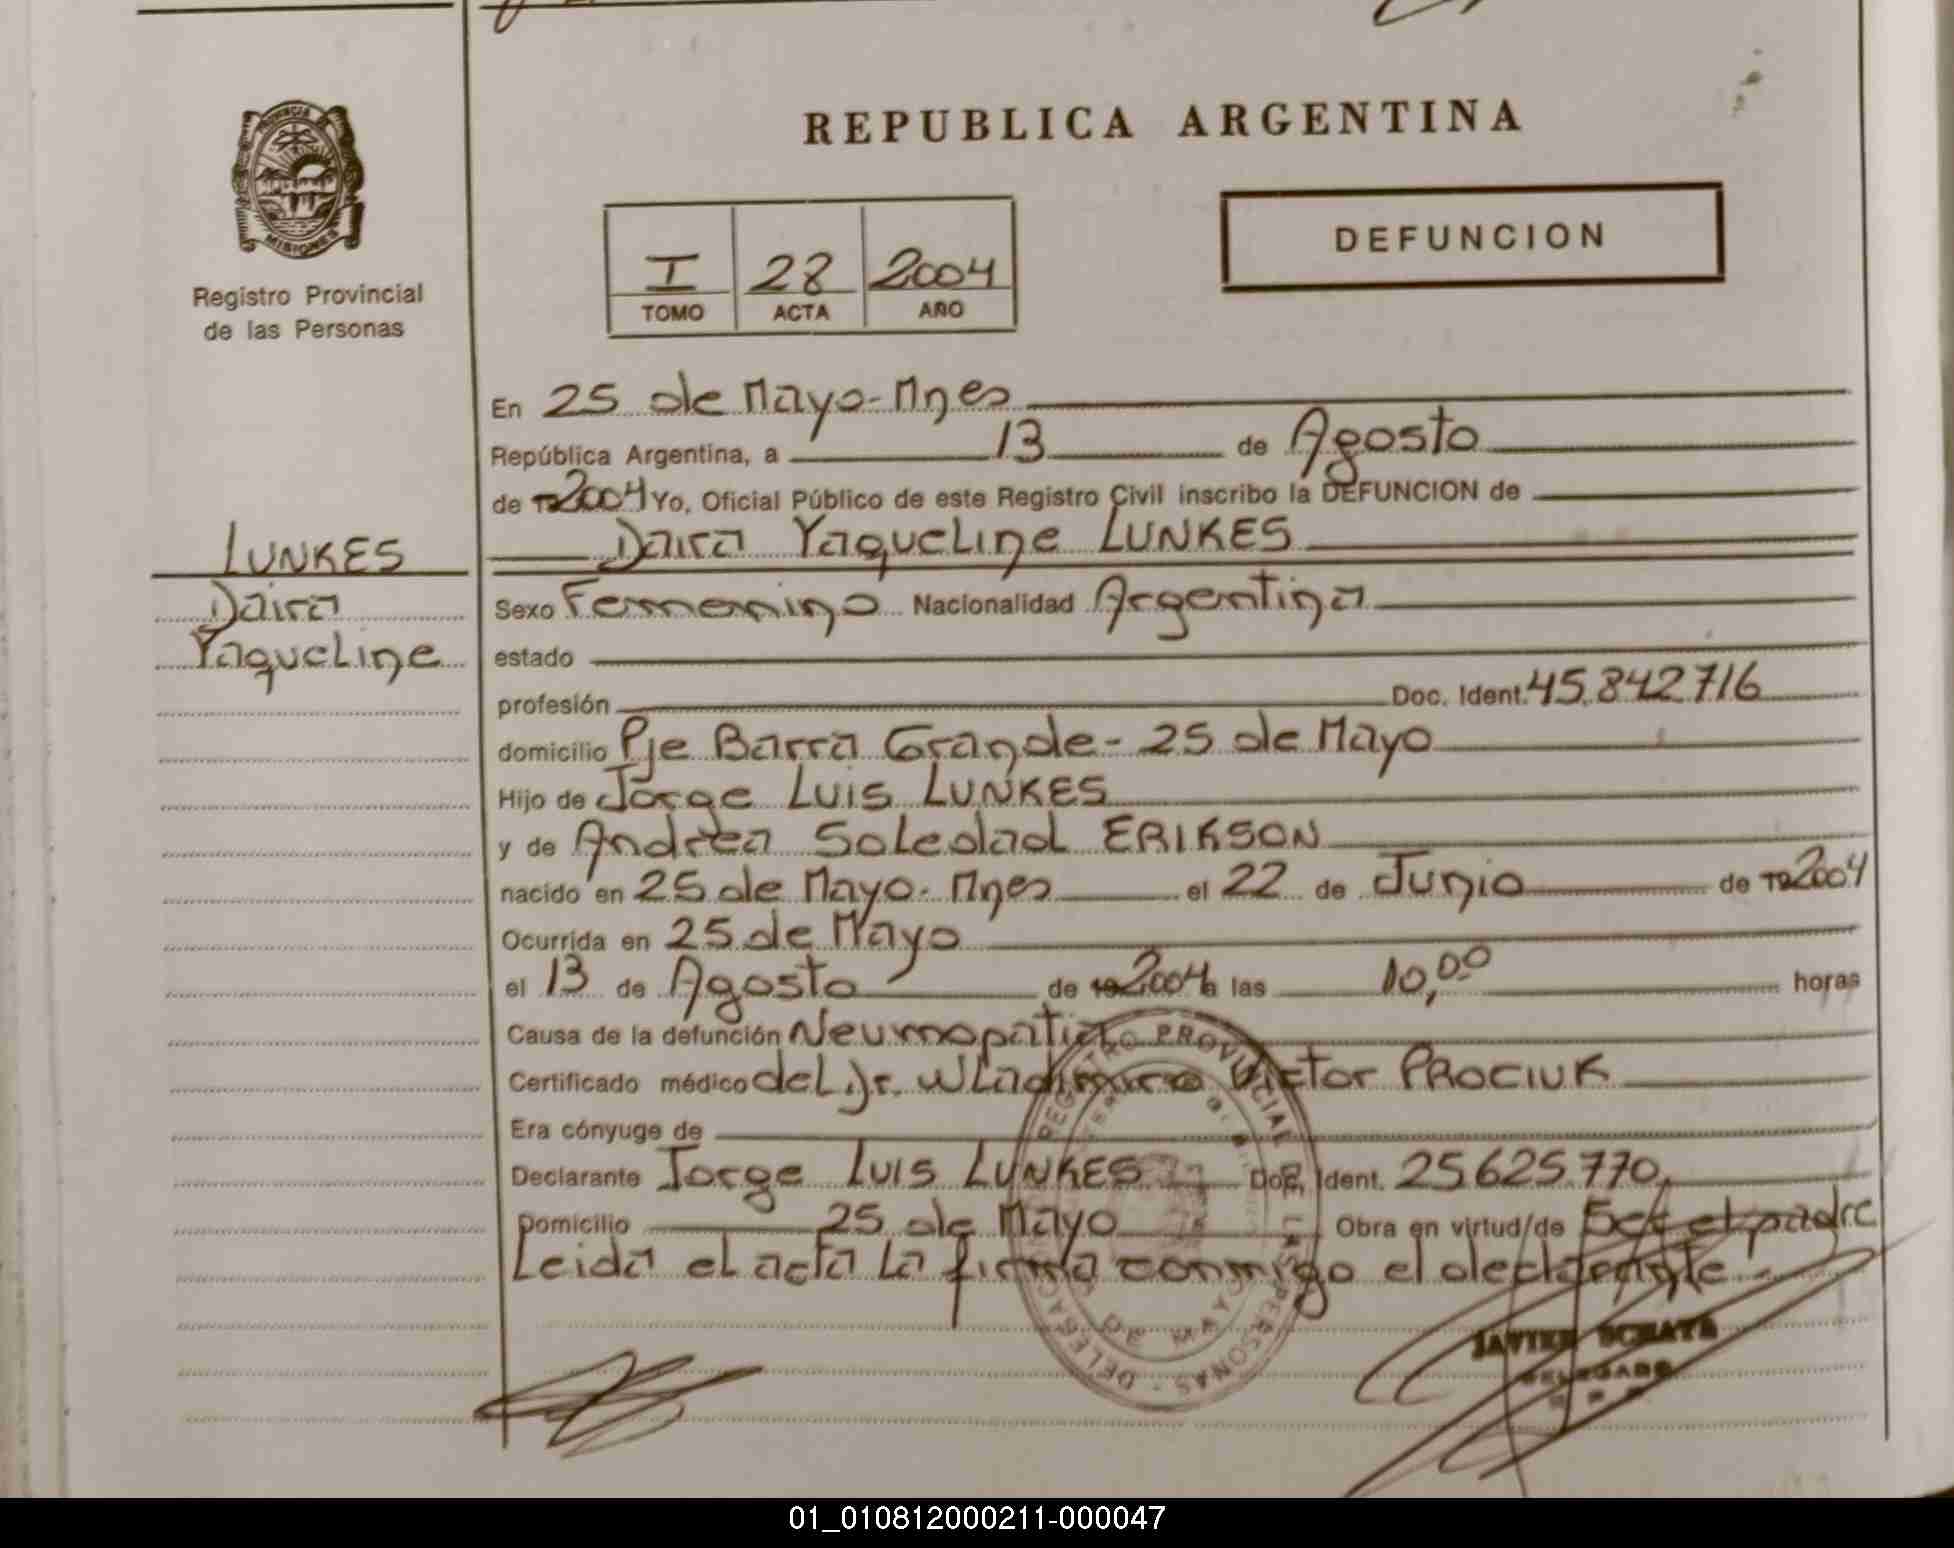 PROVINCIA DE
MISIONES
Registro Provincial
de las Personas
REPUBLICA ARGENTINA
DEFUNCION
I 28 2004
TOMO ACTA AÑO
En 25 de Mayo-Mnes
República Argentina, a 13 de Agosto
de 19 2004 Yo, Oficial Público de este Registro Civil inscribo la DEFUNCION de
Daira Yaqueline LUNKES
LUNKES
Daira
Yaqueline
Sexo Femenino Nacionalidad Argentina
estado
profesión Doc. Ident. 45.842716
domicilio Pje Barra Grande - 25 de Mayo
Hijo de Jorge Luis LUNKES
y de Andrea Soledad ERIKSON
nacido en 25 de Mayo. Mnes el 22 de Junio de 19 2004
Ocurrida en 25 de Mayo
el 13 de Agosto de 19 2004 a las 10,00 horas
Causa de la defunción Neumopatia
Certificado médico del Dr. Wladimiro Victor PROCIUK
Era cónyuge de
Declarante Jorge Luis LUNKES Doc. Ident. 25625.770
Domicilio 25 de Mayo Obra en virtud de Ser el padre
Leida el acta la firma conmigo el declarante.-
REGISTRO PROVINCIAL DE LAS PERSONAS - DELEGACION
JAVIER
DELEGADO
01_010812000211-000047